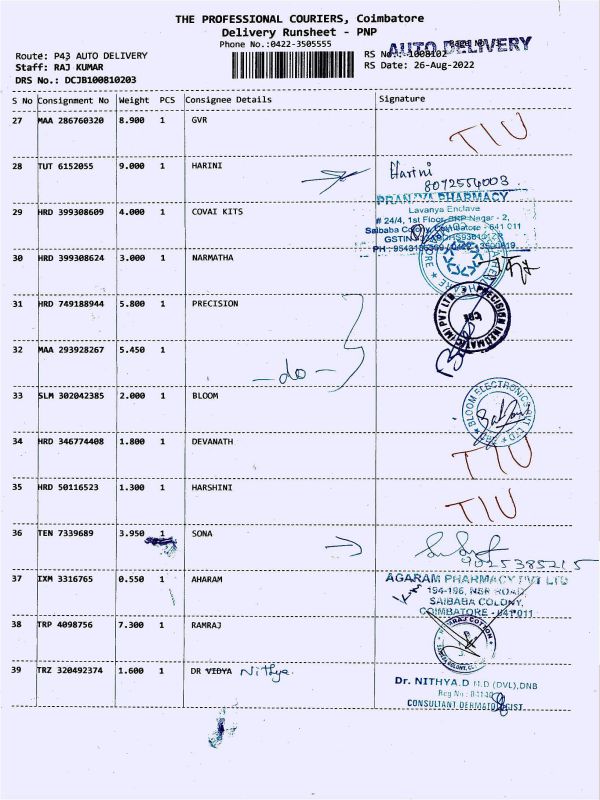 THE PROFESSIONAL COURIERS, Coimbatore
Delivery Runsheet - PNP
Phone No.:0422-3505555
AUTO DELIVERY
Route: P43 AUTO DELIVERY
RS No.: 1008102
Staff: RAJ KUMAR
RS Date: 26-Aug-2022
DRS No.: DCJB100810203
S No Consignment No Weight PCS Consignee Details Signature
27 MAA 286760320 8.900 1 GVR TIU
28 TUT 6152055 9.000 1 HARINI Harini
8072554003
PRANAYA PHARMACY
Lavanya Enclave
29 HRD 399308609 4.000 1 COVAI KITS # 24/4, 1st Floor, Nagar - 2,
Saibaba Colony, Coimbatore - 641 011
GSTIN
PH :
30 HRD 399308624 3.000 1 NARMATHA
31 HRD 749188944 5.800 1 PRECISION PRECISION INFOMATIC (M) PVT LTD
CBE
32 MAA 293928267 5.450 1
-do-
33 SLM 302042385 2.000 1 BLOOM BLOOM ELECTRONICS PVT LTD
34 HRD 346774408 1.800 1 DEVANATH TIU
35 HRD 50116523 1.300 1 HARSHINI TIU
36 TEN 7339689 3.950 1 SONA
9025385215
37 IXM 3316765 0.550 1 AHARAM AGARAM PHARMACY PVT LTD
194-196, NSR ROAD,
SAIBABA COLONY,
COIMBATORE - 641 011
38 TRP 4098756 7.300 1 RAMRAJ RAMRAJ COTTON
39 TRZ 320492374 1.600 1 DR VIDYA Nithya.
Dr. NITHYA.D M.D (DVL),DNB
Reg No :
CONSULTANT DERMATOLOGIST